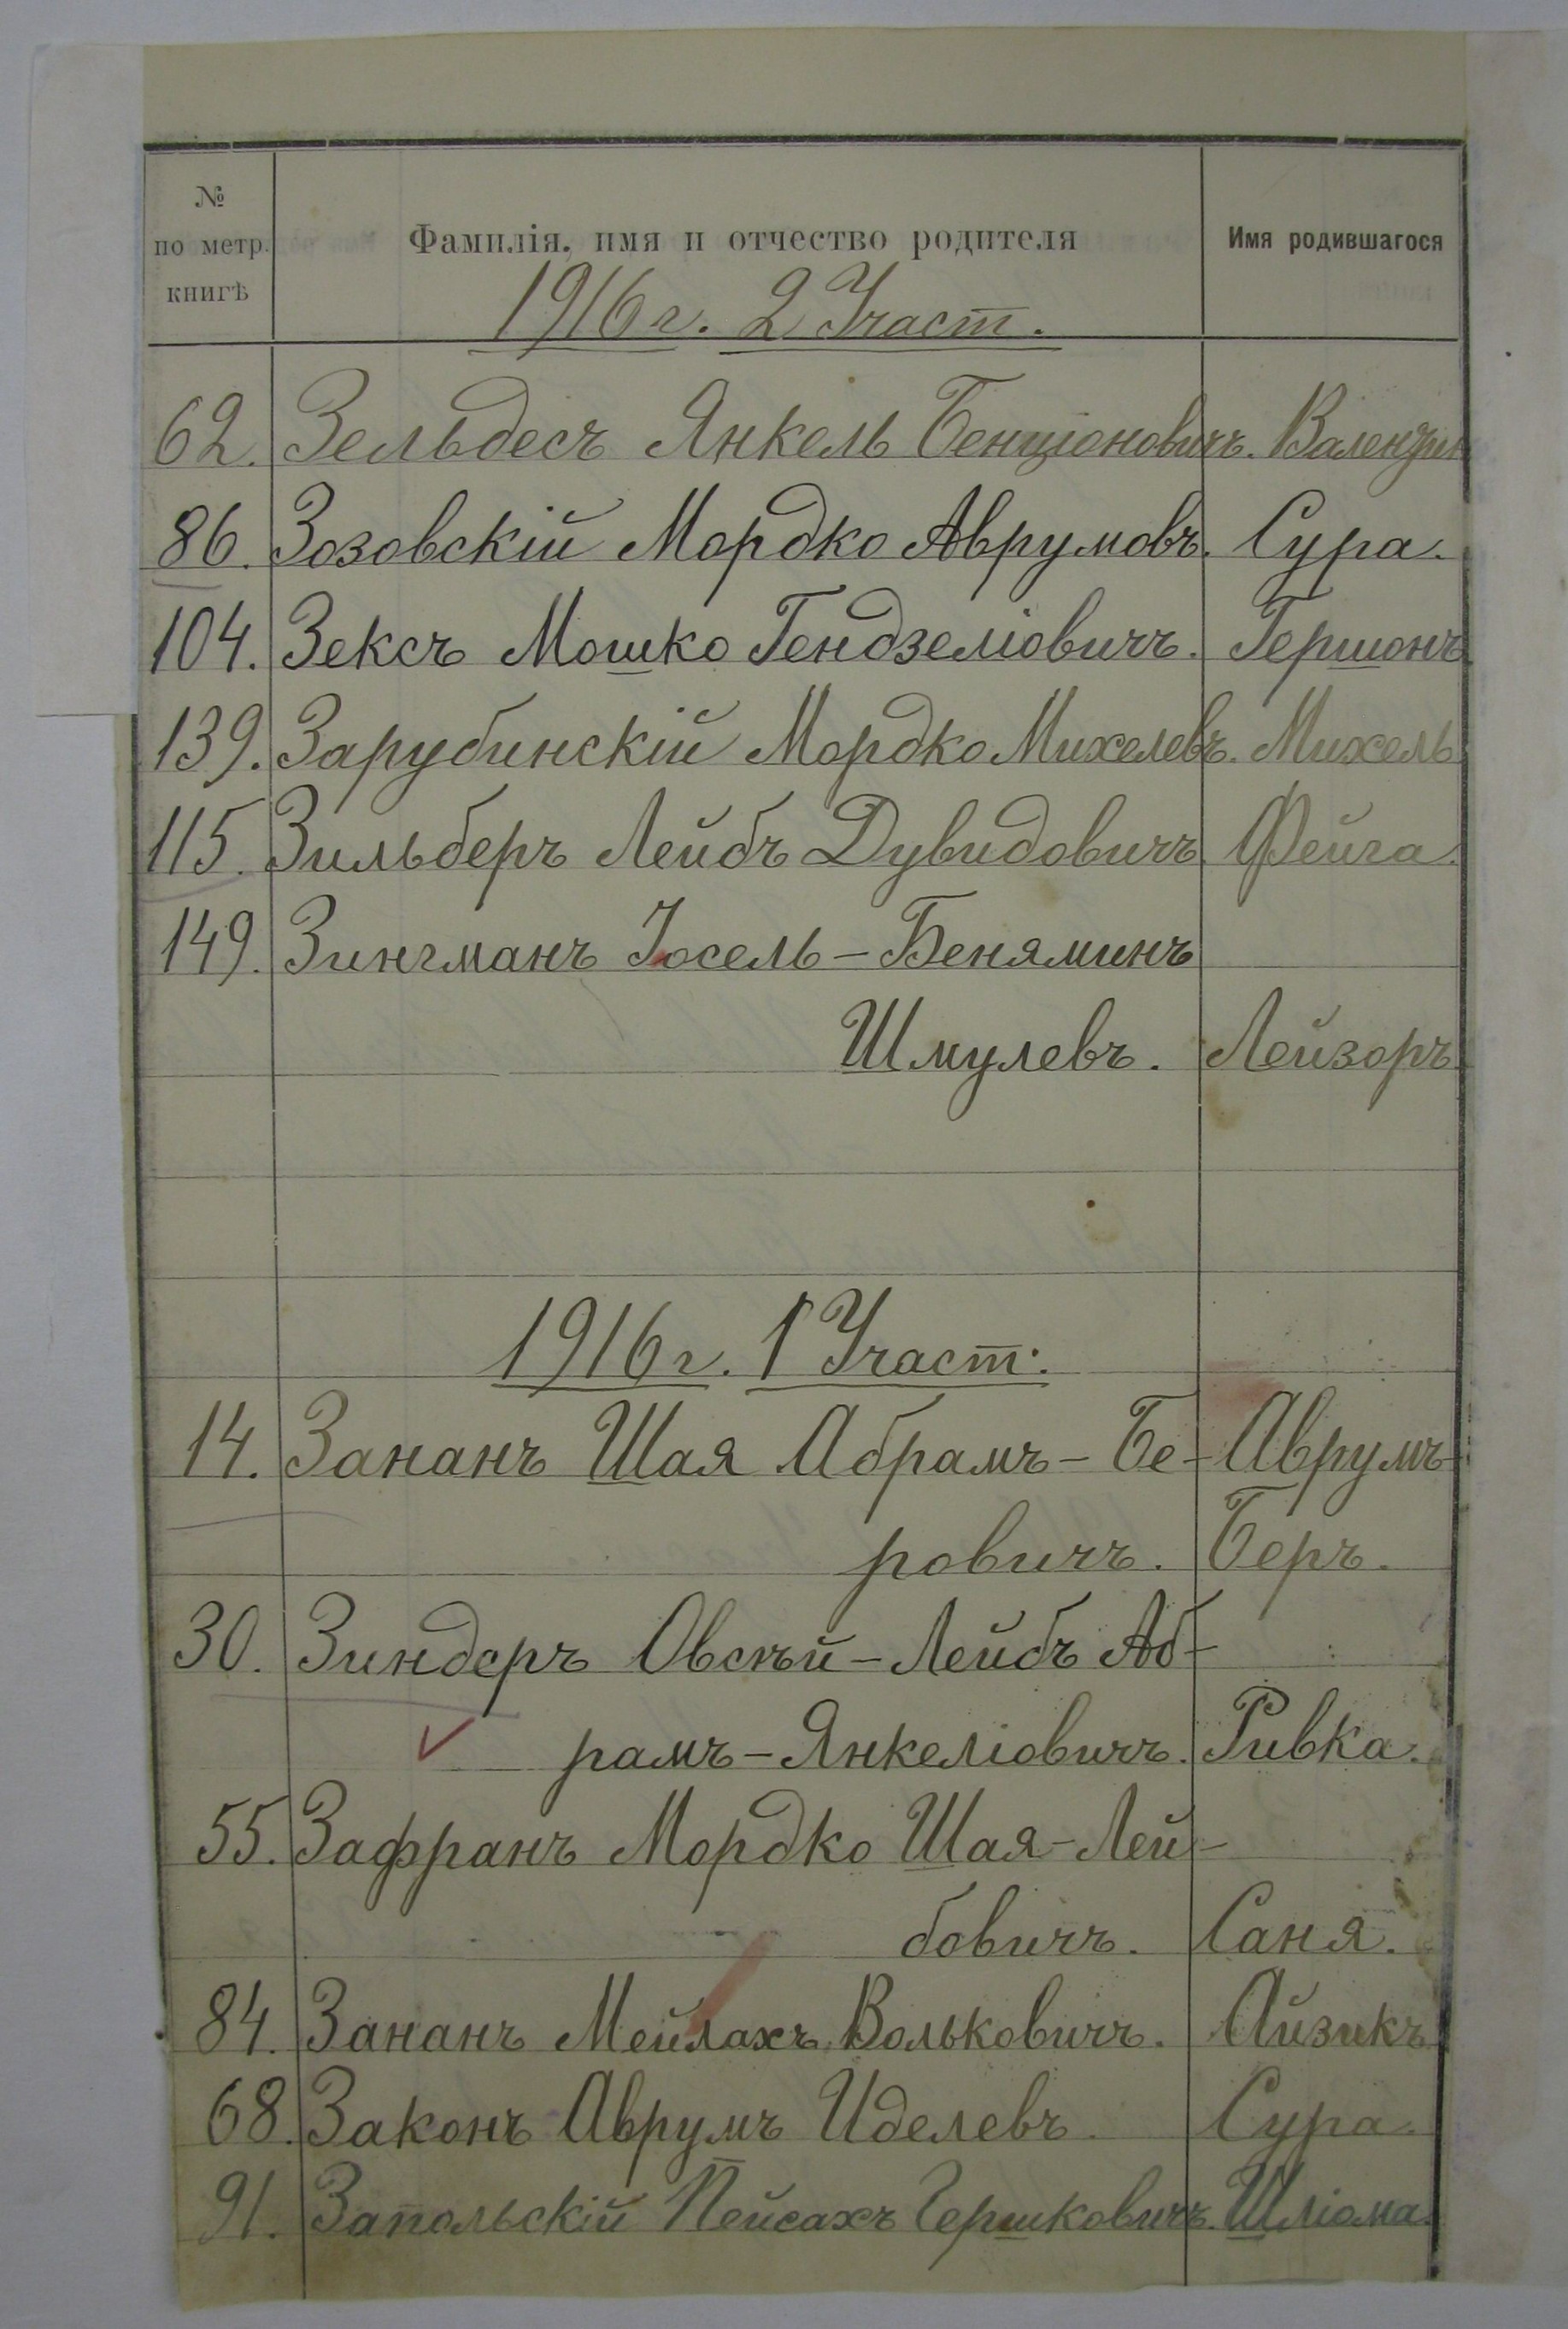 № по метр. книгѣ Фамилія, имя и отчество родителя Имя родившагося
1916 г. 2 Участ.
62. Зельдесъ Янкель Бенціоновичъ. Валентин
86. Зозовскій Мордко Аврумовъ. Сура.
104. Зексъ Мошко Гендзеліовичъ. Гершонъ
139. Зарубинскій Мордко Михелевъ. Михель
115. Зильберъ Лейбъ Дувидовичъ Фейга.
149. Зингманъ Іосель-Беняминъ
Шмулевъ. Лейзоръ
1916 г. 1 Участ.
14. Зананъ Шая Абрамъ-Бе- Аврумъ-
ровичъ. Беръ.
30. Зиндеръ Овсѣй-Лейбъ Аб-
рамъ-Янкеліовичъ. Ривка.
55. Зафранъ Мордко Шая-Лей-
бовичъ. Саня.
84. Зананъ Мейлахъ Вольковичъ. Айзикъ
68. Законъ Аврумъ Иделевъ. Сура.
91. Запольскій Пейсахъ Гершковичъ. Шліома.